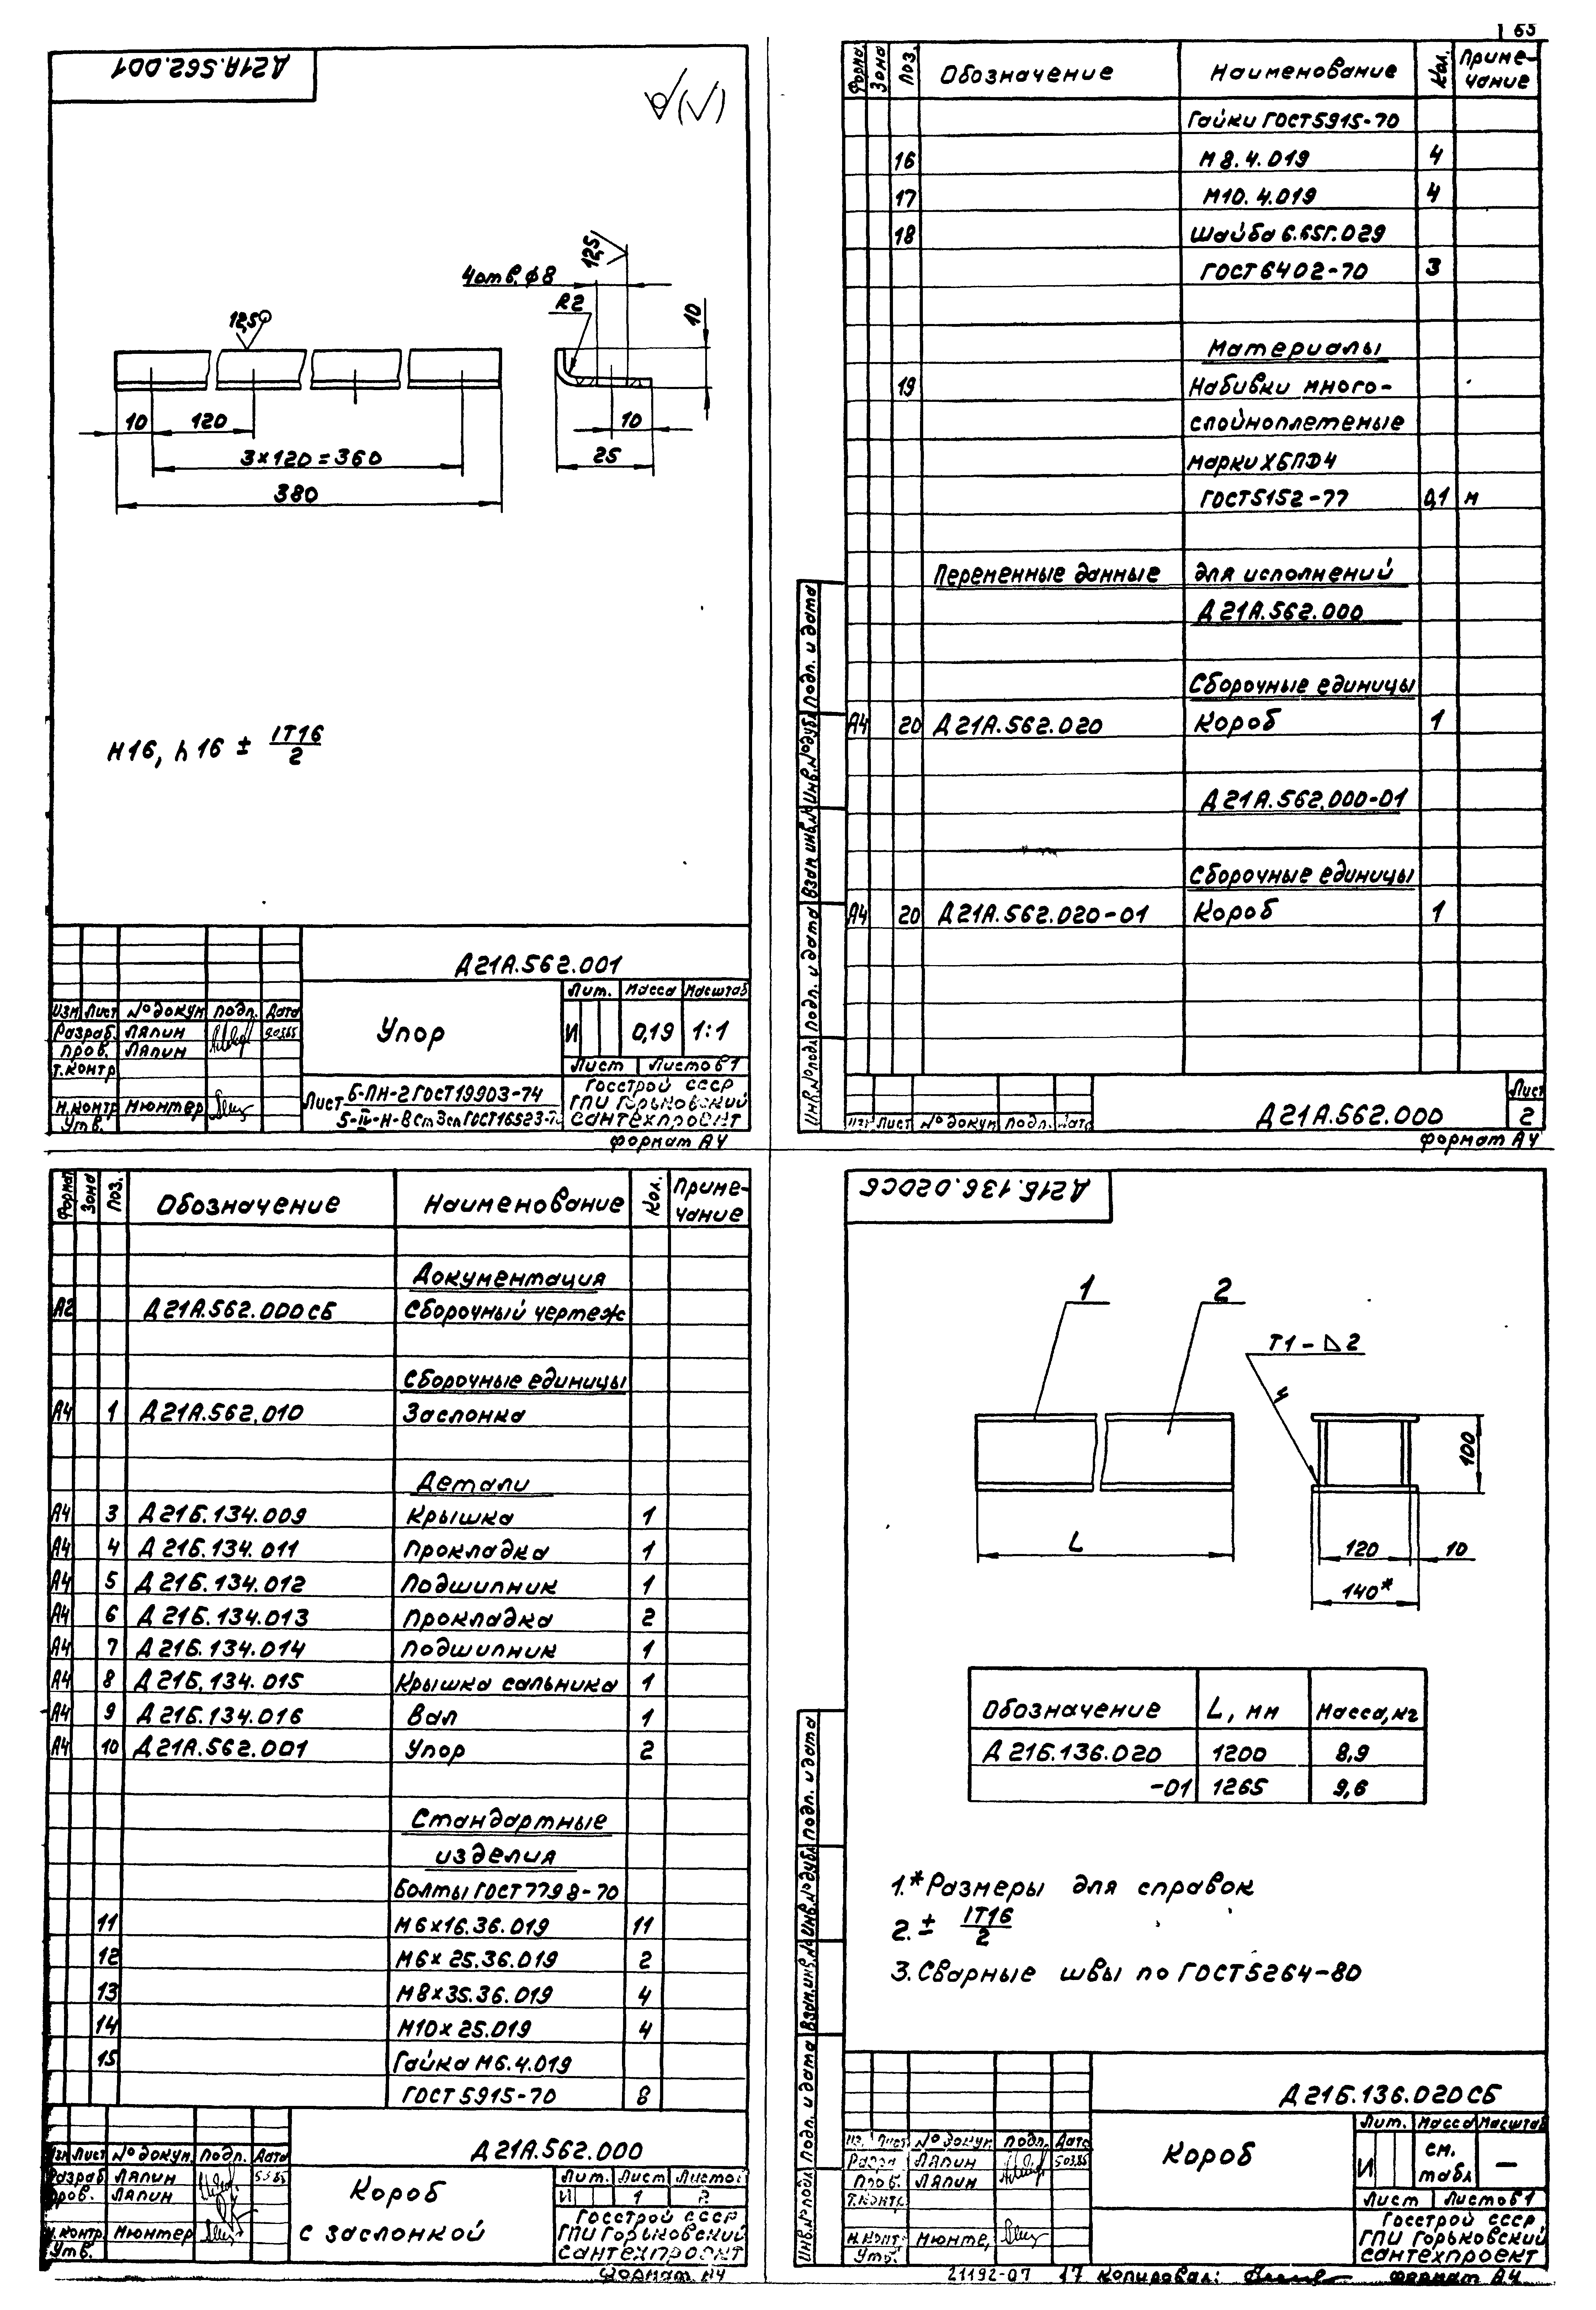 65
Д21А.562.001
√(√)
4отв.ф8
12,5
R2
10
12,5
10
120
3×120=360
380
10
25
H16, h16 ± IT16/2
Д21А.562.001
Упор
Лит. Масса Масштаб
И 0,19 1:1
Лист Листов 1
Изм Лист № докум. Подп. Дата
Разраб. Ляпин
Пров. Ляпин
Т.контр
Н.контр Мюнтер
Утв.
Лист Б-ПН-2 ГОСТ 19903-74
5-IV-Н-ВСт3сп ГОСТ 16523-70
Госстрой СССР
ГПИ Горьковский
Сантехпроект
Формат А4
Форма Зона Поз. Обозначение Наименование Кол. Приме-
чание
Гайки ГОСТ 5915-70
16 М8.4.019 4
17 М10.4.019 4
18 Шайба 6.65Г.029
ГОСТ 6402-70 3
Материалы
19 Набивки много-
слойноплетеные
марки ХБПД4
ГОСТ 5152-77 0,1 м
Переменные данные для исполнений
Д21А.562.000
Сборочные единицы
А4 20 Д21А.562.020 Короб 1
Д21А.562.000-01
Сборочные единицы
А4 20 Д21А.562.020-01 Короб 1
Инв.№ подл. Подп. и дата Взам инв.№ Инв.№ дубл. Подп. и дата
Изм Лист № докум. Подп. Дата
Д21А.562.000
Лист
2
Формат А4
Форма Зона Поз. Обозначение Наименование Кол. Приме-
чание
Документация
А2 Д21А.562.000СБ Сборочный чертеж
Сборочные единицы
А4 1 Д21А.562.010 Заслонка
Детали
А4 3 Д21Б.134.009 Крышка 1
А4 4 Д21Б.134.011 Прокладка 1
А4 5 Д21Б.134.012 Подшипник 1
А4 6 Д21Б.134.013 Прокладка 2
А4 7 Д21Б.134.014 Подшипник 1
А4 8 Д21Б.134.015 Крышка сальника 1
А4 9 Д21Б.134.016 Вал 1
А4 10 Д21А.562.001 Упор 2
Стандартные
изделия
Болты ГОСТ 7798-70
11 М6×16.36.019 11
12 М6×25.36.019 2
13 М8×35.36.019 4
14 М10×25.019 4
15 Гайка М6.4.019
ГОСТ 5915-70 8
Д21А.562.000
Изм Лист № докум. Подп. Дата
Разраб Ляпин
Пров. Ляпин
Н.контр. Мюнтер
Утв.
Короб
с заслонкой
Лит. Лист Листов
И 1 2
Госстрой СССР
ГПИ Горьковский
Сантехпроект
Формат А4
Д21Б.136.020СБ
1
2
Т1-◺2
100
L
120
10
140*
Обозначение L, мм Масса, кг
Д21Б.136.020 1200 8,9
-01 1265 9,6
1.* Размеры для справок
2. ± IT16/2
3. Сварные швы по ГОСТ 5264-80
Инв.№ подл. Подп. и дата Взам.инв.№ Инв.№ дубл. Подп. и дата
Д21Б.136.020СБ
Короб
Лит. Масса Масштаб
И см.
табл –
Лист Листов 1
Из. Лист № докум. Подп. Дата
Разра Ляпин
Пров. Ляпин
Т.контр.
Н.контр Мюнте,
Утв.
Госстрой СССР
ГПИ Горьковский
Сантехпроект
21192-07 17 Копировал: Формат А4